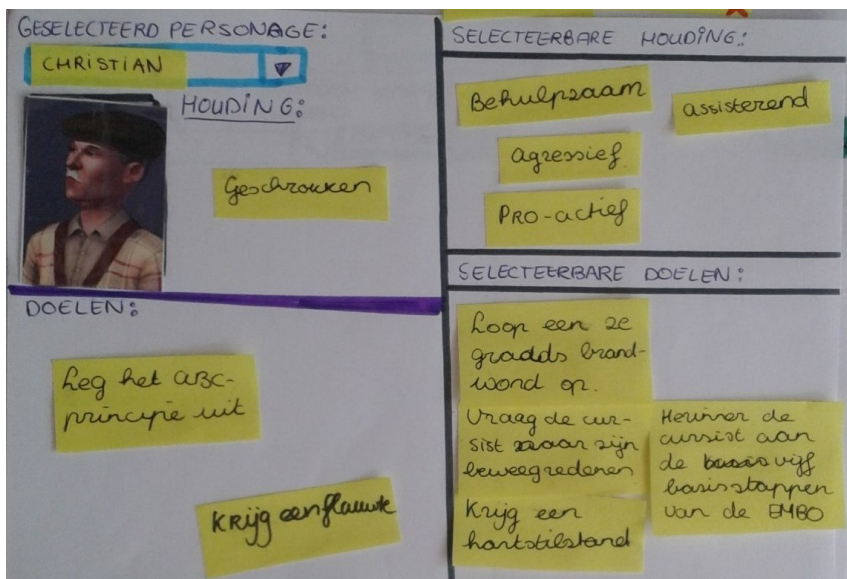 GESELECTEERD PERSONAGE:
CHRISTIAN
HOUDING:
Geschrokken
DOELEN:
Leg het ABC-
principe uit
Krijg een flauwte
SELECTEERBARE HOUDING:
Behulpzaam
assisterend
agressief
PRO-actief
SELECTEERBARE DOELEN:
Loop een 2e
gradds brand-
wond op.
Vraag de cur-
sist naar zijn
beweegredenen
Herinner de
cursist aan
de vijf
basisstappen
van de EHBO
Krijg een
hartstilstand